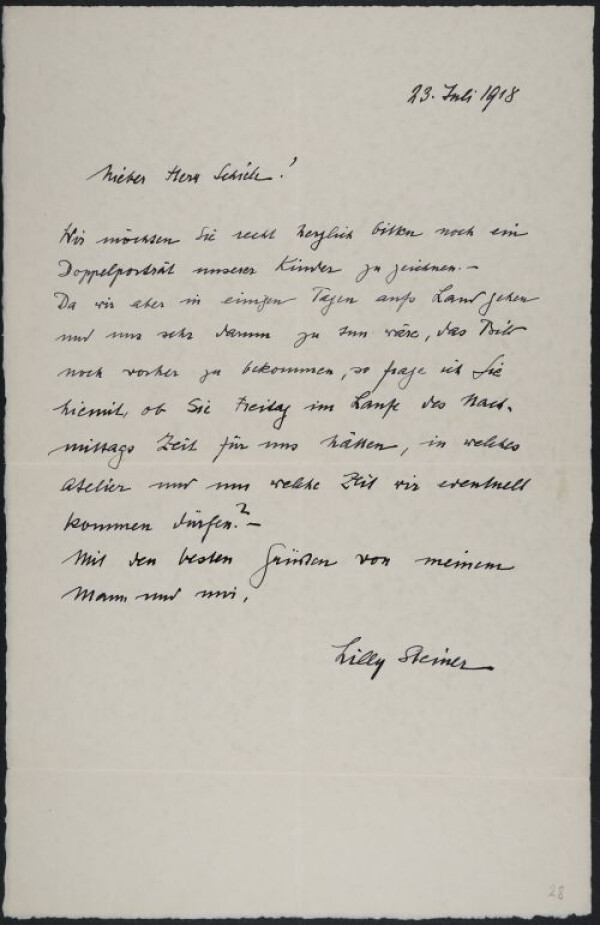 23. Juli 1918
Lieber Herr Schiele!
Wir möchten Sie recht herzlich bitten noch ein
Doppelporträt unserer Kinder zu zeichnen.—
Da wir aber in einigen Tagen aufs Land gehen
und uns sehr darum zu tun wäre, das Bild
noch vorher zu bekommen, so frage ich Sie
hiemit, ob Sie Freitag im Laufe des Nach-
mittags Zeit für uns hätten, in welches
Atelier und um welche Zeit wir eventuell
kommen dürfen?—
Mit den besten Grüßen von meinem
Mann und mir,
Lilly Steiner
28